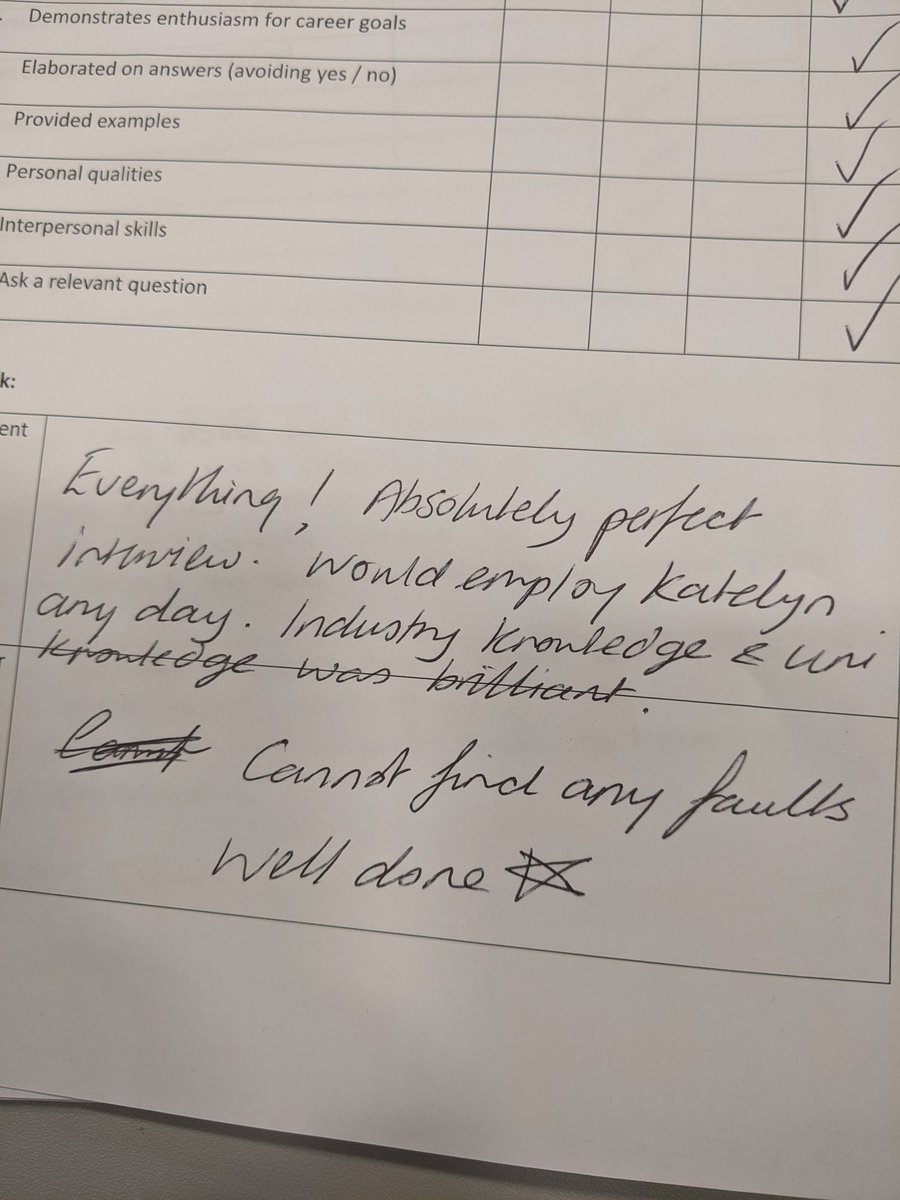 Demonstrates enthusiasm for career goals
Elaborated on answers (avoiding yes / no)
Provided examples
Personal qualities
Interpersonal skills
Ask a relevant question
k:
ent
Everything! Absolutely perfect
interview. Would employ Katelyn
any day. Industry knowledge & uni
knowledge was brilliant.
Cannot find any faults
Well done